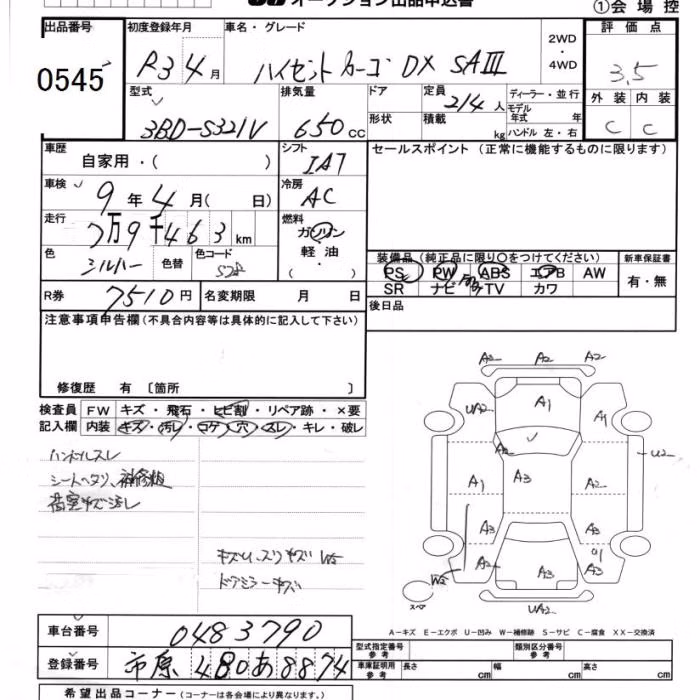 オークション出品申込書
①会場控
出品番号
0545
初度登録年月
R3 4月
車名・グレード
ハイゼットカーゴ DX SAⅢ
2WD
・
4WD
評価点
3.5
型式
3BD-S321V
排気量
650cc
ドア
形状
定員
2/4人
積載
kg
ディーラー・並行
モデル年式 年
ハンドル 左・右
外装 内装
C C
車歴
自家用・( )
シフト
IAT
セールスポイント (正常に機能するものに限ります)
車検
9年4月( 日)
冷房
AC
走行
7万9千463km
燃料
ガソリン
軽油
・
( )
色
シルバー
色替
色コード
S28
装備品 (純正品に限り○をつけてください)
PS PW ABS エアB AW
SR ナビ TV カワ
新車保証書
有・無
R券
7510円
名変期限 月 日
後日品
注意事項申告欄(不具合内容等は具体的に記入して下さい)
修復歴 有 〔箇所 〕
検査員
記入欄
FW キズ・飛石・ヒビ割・リペア跡・×要
内装 キズ・汚レ・コゲ・穴・スレ・キレ・破レ
ハンドルスレ
シートヘタリ、補修跡
荷室キズ汚レ
キズU、スリキズ W2
ドアミラーキズ
A2 A2 A2
UA2 A1 A1
U2
A1 A3 A2
A3 A3
U1
W2 A2 A3 A3
UA2
スペア
A-キズ E-エクボ U-凹み W-補修跡 S-サビ C-腐食 XX-交換済
車台番号
0483790
登録番号
市原 480 あ 8874
型式指定番号
参考
類別区分番号
参考
車庫証明用
参考
長さ cm 幅 cm 高さ cm
希望出品コーナー(コーナーは各会場により異なります。)